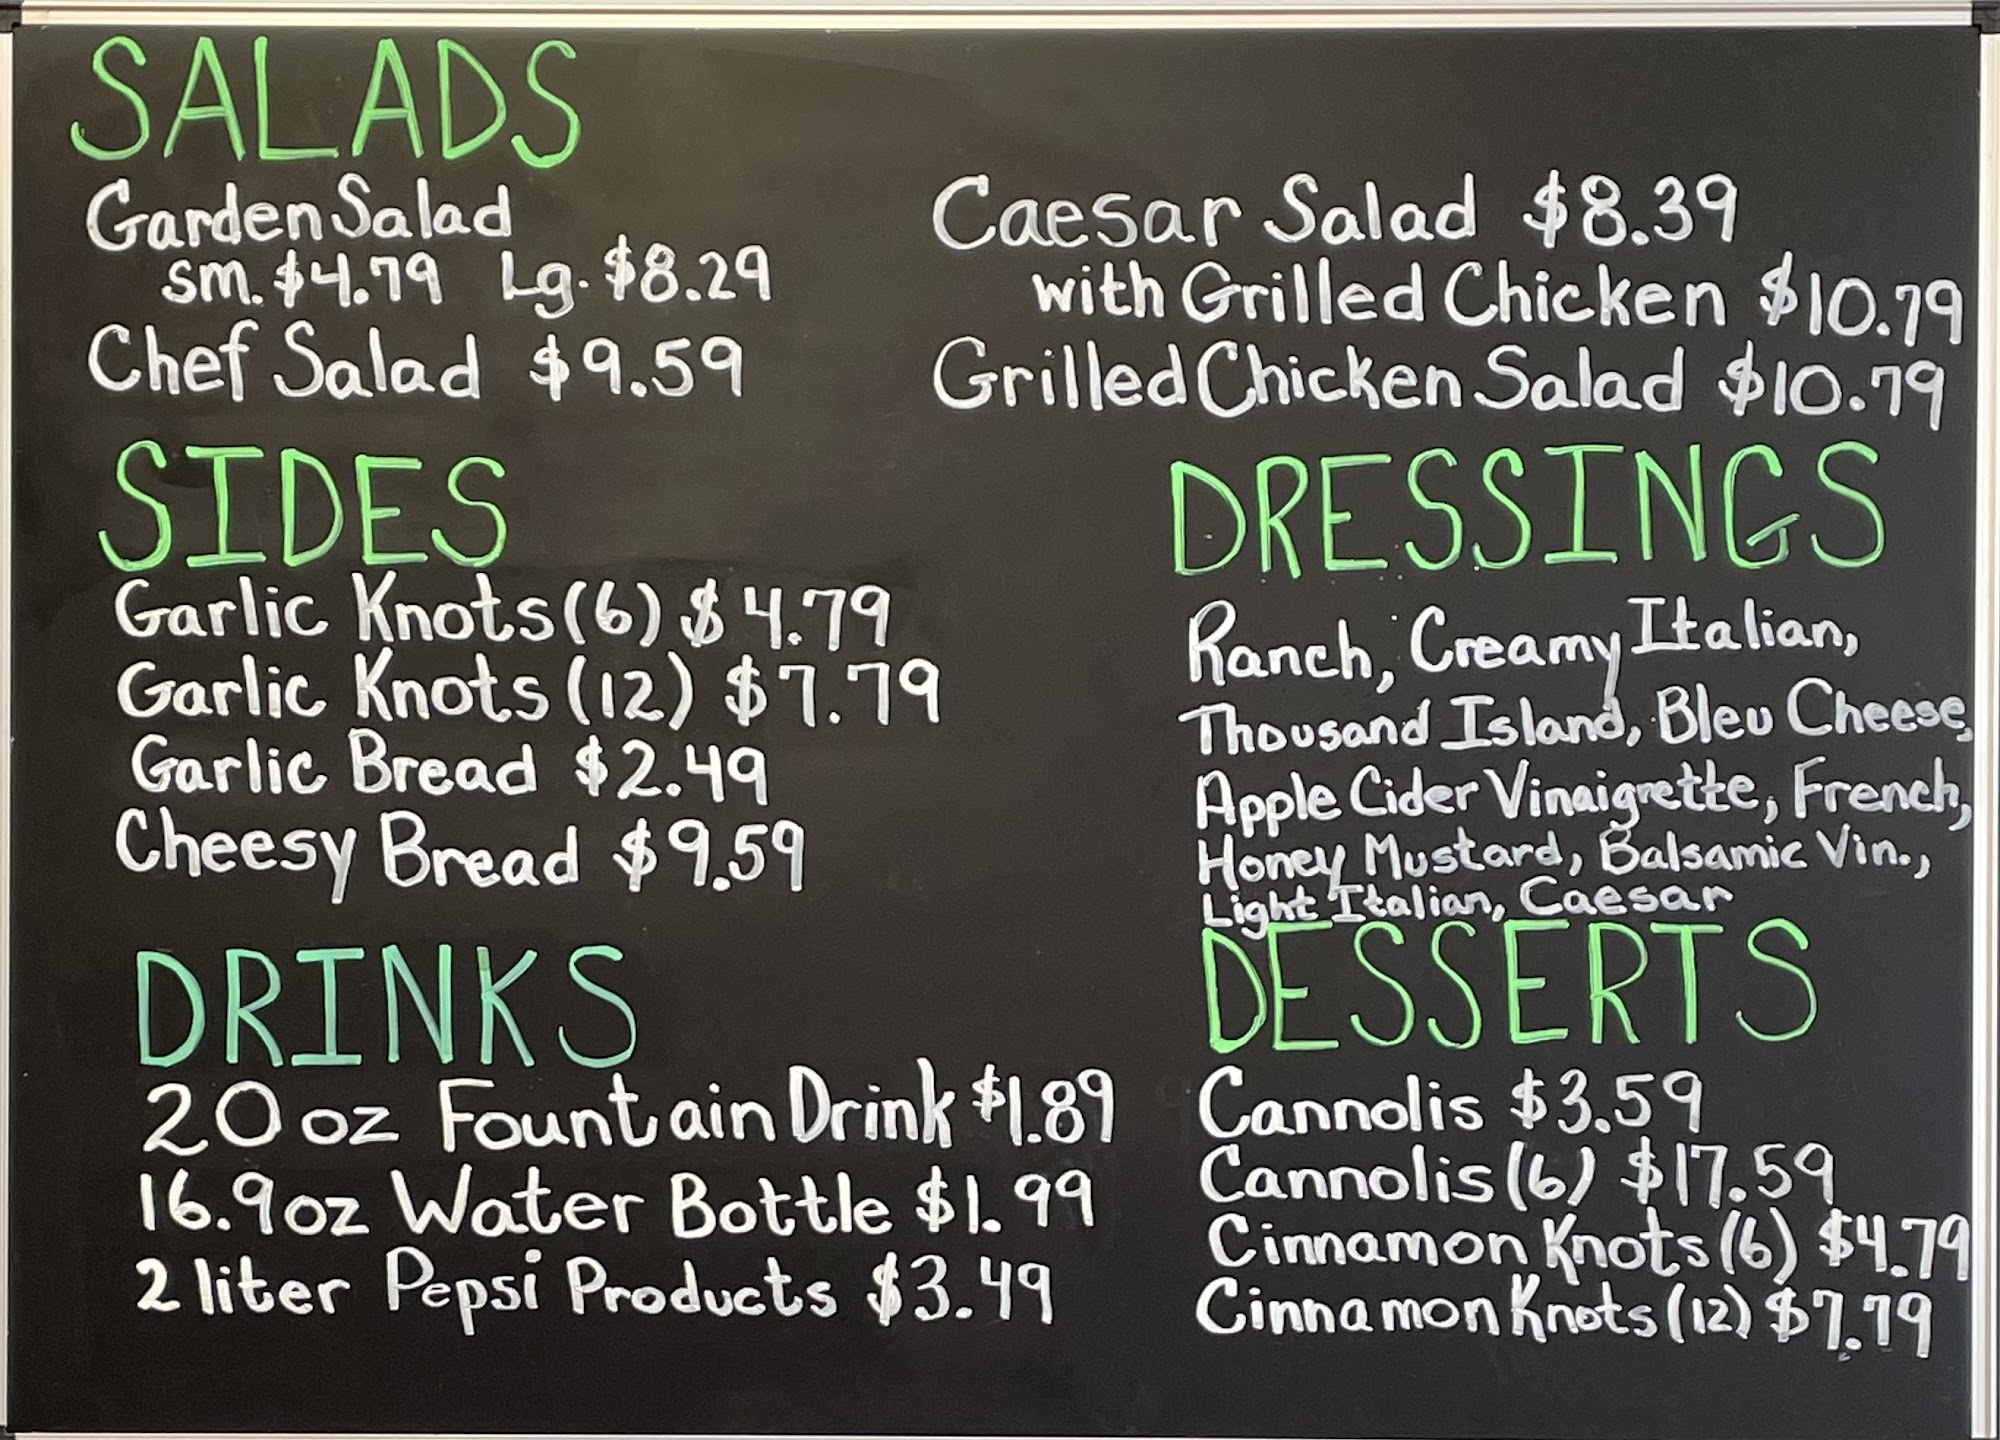 SALADS
Garden Salad
sm. $4.79 Lg. $8.29
Chef Salad $9.59
Caesar Salad $8.39
with Grilled Chicken $10.79
Grilled Chicken Salad $10.79
SIDES
Garlic Knots (6) $4.79
Garlic Knots (12) $7.79
Garlic Bread $2.49
Cheesy Bread $9.59
DRESSINGS
Ranch, Creamy Italian,
Thousand Island, Bleu Cheese,
Apple Cider Vinaigrette, French,
Honey Mustard, Balsamic Vin.,
Light Italian, Caesar
DRINKS
20 oz Fountain Drink $1.89
16.9oz Water Bottle $1.99
2 liter Pepsi Products $3.49
DESSERTS
Cannolis $3.59
Cannolis (6) $17.59
Cinnamon Knots (6) $4.79
Cinnamon Knots (12) $7.79